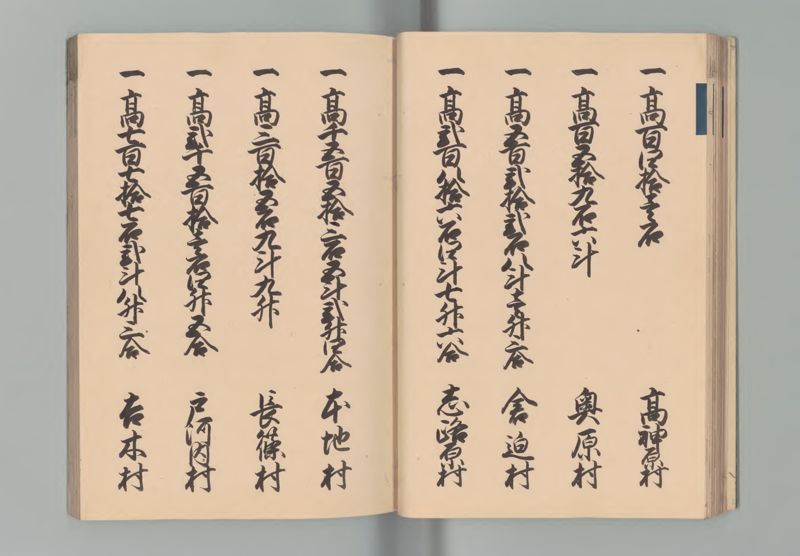 一高百四拾壱石 高神原村
一高百五拾九石六斗 奥原村
一高五百弐拾弐石八斗壱升二合 舎迫村
一高弐百八拾六石四斗七升六合 志路原村
一高千五百五拾二石五斗弐升四合 本地村
一高二百拾五石九斗九升 長篠村
一高弐千五百拾壱石四升五合 戸河内村
一高七百七拾七石弐斗八升二合 吉木村